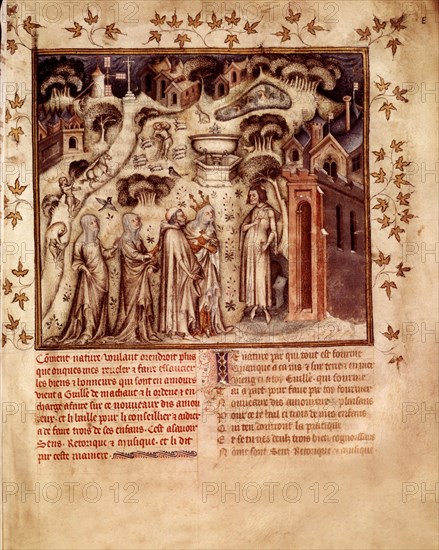 E
Coment nature voulant orendroit plus
que onques mes reveler et faire essaucier
les biens et honneurs qui sont en amours
vient a Guille de machaut et li ordene et en
charge a faire sur ce nouveaux dis amou
reux. et li baille pour li conseillier et aidier
a ce faire trois de ses enfans. Cest asavoir
Sens. Retorique et musique. et li dit
par ceste maniere.
Je nature par qui tout est fourme
Quanque a ca jus et sur terre et en mer
Vieng ci a toy Guille. qui fourme
Tay a part pour faire par toy fourmer
Nouveaux dis amoureux plaisans
Pour ce te bail ci trois de mes enfans
Qui ten donront la pratique
Et se tu nes deulz trois bien cognoissans
Nome sont Sens Retorique et musique
PHOTO12